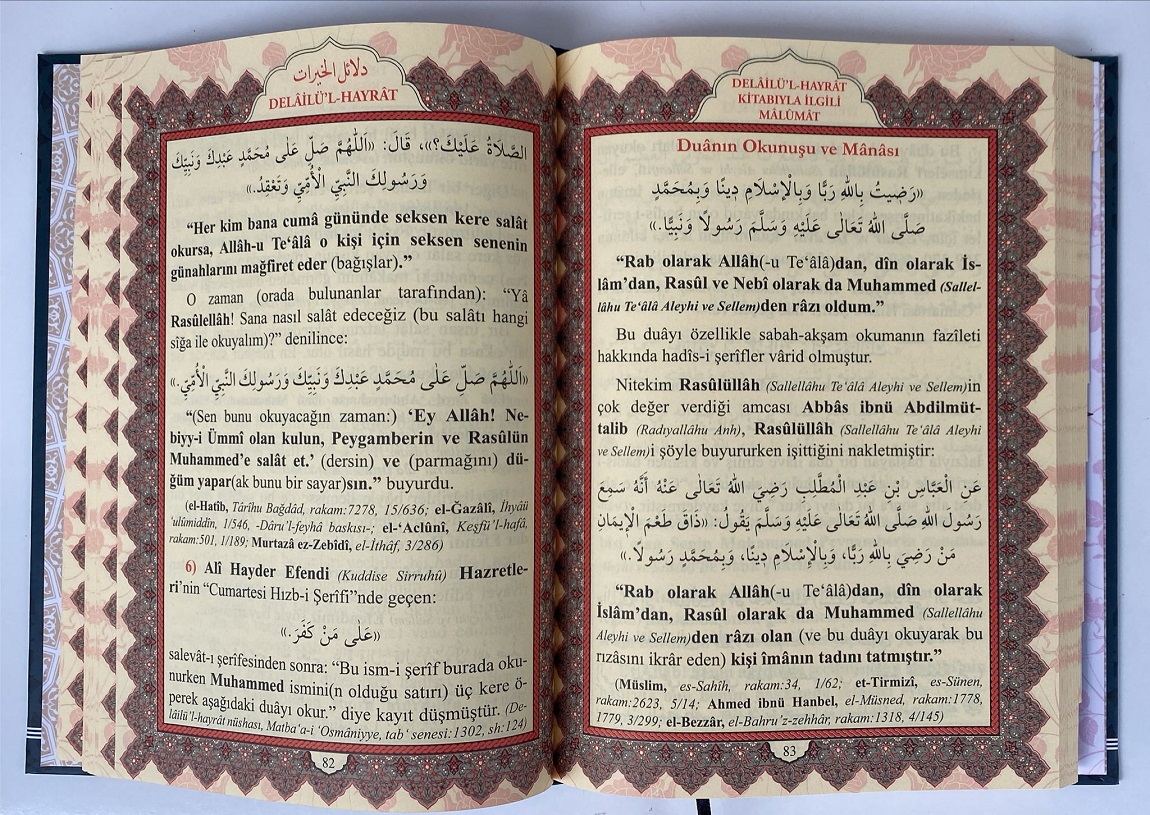 دلائل الخيرات
DELÂİLÜ'L-HAYRÂT
الصَّلَاةُ عَلَيْكَ؟»، قَالَ: «اَللّٰهُمَّ صَلِّ عَلٰى مُحَمَّدٍ عَبْدِكَ وَنَبِيِّكَ
وَرَسُولِكَ النَّبِيِّ الْأُمِّيِّ وَتَعْقِدُ.»
“Her kim bana cumâ gününde seksen kere salât
okursa, Allâh-u Te‘âlâ o kişi için seksen senenin
günahlarını mağfiret eder (bağışlar).”
O zaman (orada bulunanlar tarafından): “Yâ
Rasûlellah! Sana nasıl salât edeceğiz (bu salâtı hangi
sîğa ile okuyalım)?” denilince:
«اَللّٰهُمَّ صَلِّ عَلٰى مُحَمَّدٍ عَبْدِكَ وَنَبِيِّكَ وَرَسُولِكَ النَّبِيِّ الْأُمِّيِّ.»
“(Sen bunu okuyacağın zaman:) ‘Ey Allâh! Ne-
biyy-i Ümmî olan kulun, Peygamberin ve Rasûlün
Muhammed’e salât et.’ (dersin) ve (parmağını) dü-
ğüm yapar(ak bunu bir sayar)sın.” buyurdu.
(el-Hatîb, Târîhu Bağdâd, rakam:7278, 15/636; el-Ğazâlî, İhyâü
‘ulûmiddîn, 1/546, -Dâru’l-feyhâ baskısı-; el-‘Aclûnî, Keşfü’l-hafâ,
rakam:501, 1/189; Murtazâ ez-Zebîdî, el-İthâf, 3/286)
6) Alî Hayder Efendi (Kuddise Sirruhû) Hazretle-
ri’nin “Cumartesi Hızb-i Şerîfi”nde geçen:
«عَلٰى مَنْ كَفَرَ.»
salevât-ı şerîfesinden sonra: “Bu ism-i şerîf burada oku-
nurken Muhammed ismini(n olduğu satırı) üç kere ö-
perek aşağıdaki duâyı okur.” diye kayıt düşmüştür. (De-
lâilü’l-hayrât nüshası, Matba‘a-i ‘Osmâniyye, tab‘ senesi:1302, sh:124)
82
DELÂİLÜ'L-HAYRÂT
KİTABIYLA İLGİLİ
MÂLÛMÂT
Duânın Okunuşu ve Mânâsı
«رَضِيتُ بِاللهِ رَبًّا وَبِالْإِسْلَامِ دِينًا وَبِمُحَمَّدٍ
صَلَّى اللهُ تَعَالٰى عَلَيْهِ وَسَلَّمَ رَسُولًا وَنَبِيًّا.»
“Rab olarak Allâh(-u Te‘âlâ)dan, dîn olarak İs-
lâm’dan, Rasûl ve Nebî olarak da Muhammed (Sallel-
lâhu Te‘âlâ Aleyhi ve Sellem)den râzı oldum.”
Bu duâyı özellikle sabah-akşam okumanın fazîleti
hakkında hadîs-i şerîfler vârid olmuştur.
Nitekim Rasûlüllâh (Sallellâhu Te‘âlâ Aleyhi ve Sellem)in
çok değer verdiği amcası Abbâs ibnü Abdilmüt-
talib (Radıyallâhu Anh), Rasûlüllâh (Sallellâhu Te‘âlâ Aleyhi
ve Sellem)i şöyle buyururken işittiğini nakletmiştir:
عَنِ الْعَبَّاسِ بْنِ عَبْدِ الْمُطَّلِبِ رَضِيَ اللهُ تَعَالٰى عَنْهُ أَنَّهُ سَمِعَ
رَسُولَ اللهِ صَلَّى اللهُ تَعَالٰى عَلَيْهِ وَسَلَّمَ يَقُولُ: «ذَاقَ طَعْمَ الْإِيمَانِ
مَنْ رَضِيَ بِاللهِ رَبًّا، وَبِالْإِسْلَامِ دِينًا، وَبِمُحَمَّدٍ رَسُولًا.»
“Rab olarak Allâh(-u Te‘âlâ)dan, dîn olarak
İslâm’dan, Rasûl olarak da Muhammed (Sallellâhu
Aleyhi ve Sellem)den râzı olan (ve bu duâyı okuyarak bu
rızâsını ikrâr eden) kişi îmânın tadını tatmıştır.”
(Müslim, es-Sahîh, rakam:34, 1/62; et-Tirmizî, es-Sünen,
rakam:2623, 5/14; Ahmed ibnü Hanbel, el-Müsned, rakam:1778,
1779, 3/299; el-Bezzâr, el-Bahru’z-zehhâr, rakam:1318, 4/145)
83